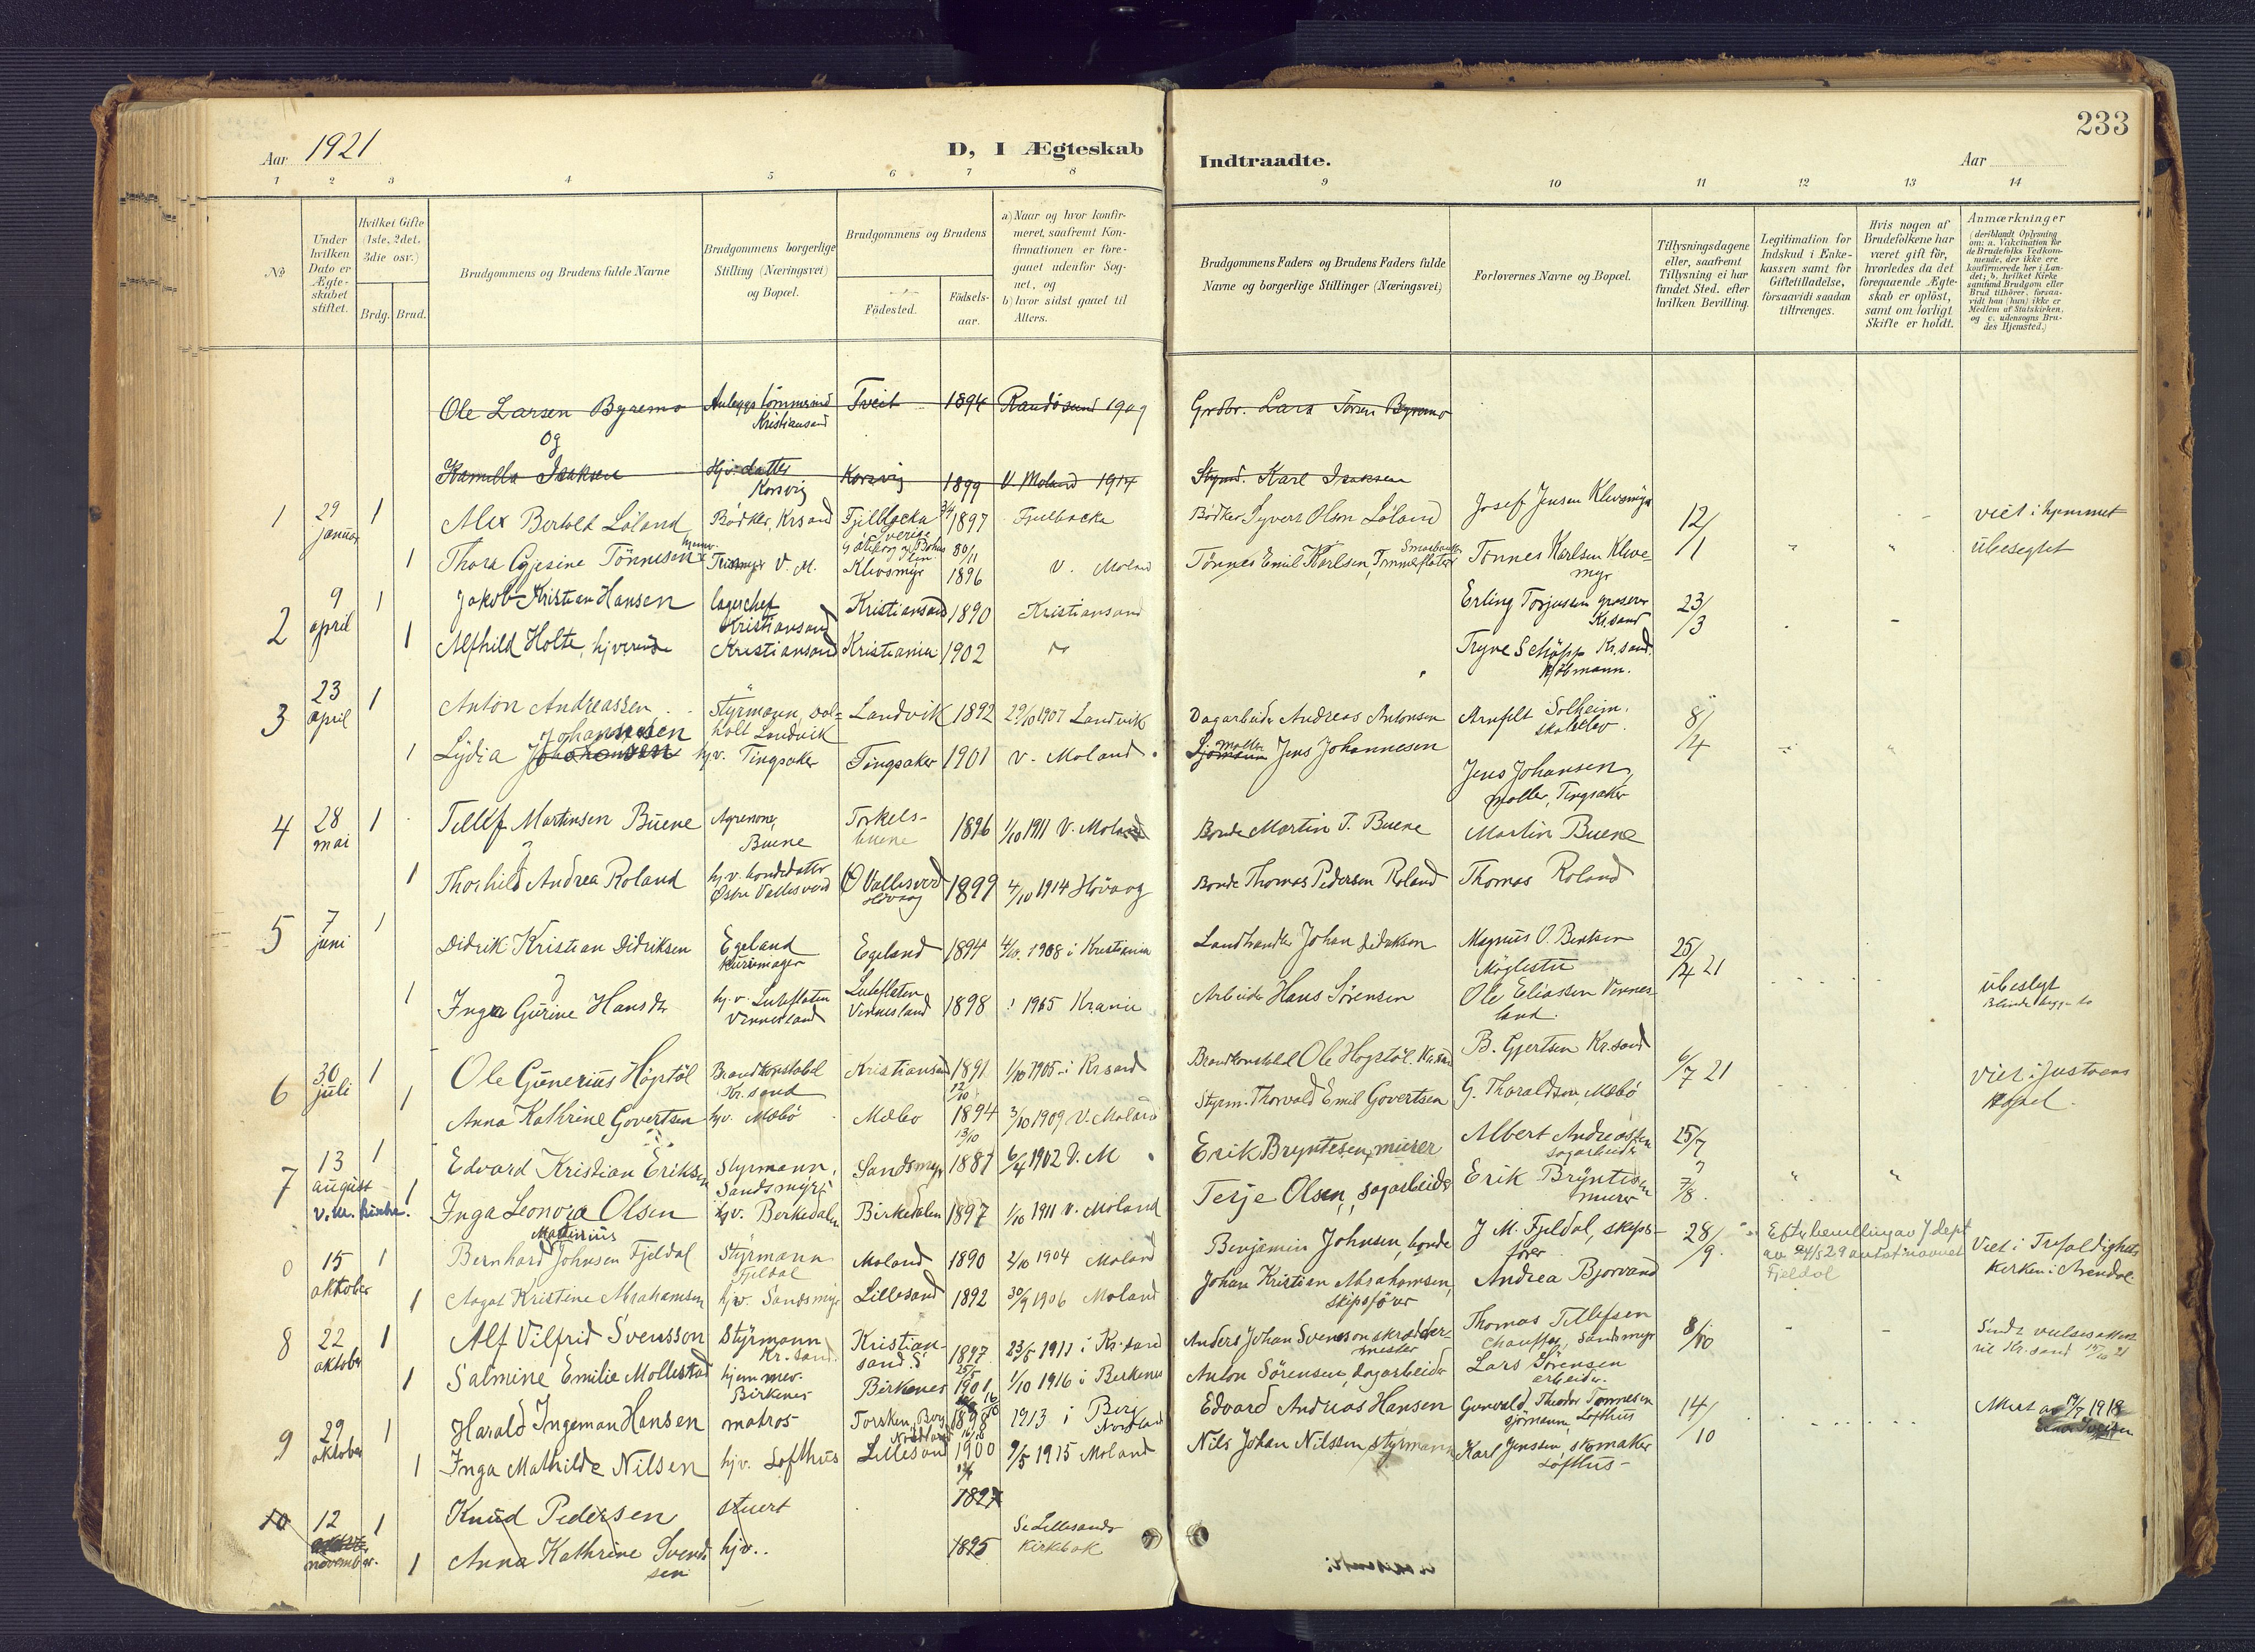 233
Aar 1921
D, I Ægteskab Indtraadte.
Aar
1 2 3 4 5 6 7 8 9 10 11 12 13 14
No
Under hvilken Dato er Ægteskabet stiftet.
Hvilket Gifte (1ste, 2det, 3die osv.)
Brdg. Brud.
Brudgommens og Brudens fulde Navne
Brudgommens borgerlige Stilling (Næringsvei) og Bopæl.
Brudgommens og Brudens
Födested.
Födsels-aar.
a) Naar og hvor konfirmeret, saafremt Konfirmationen er foregaaet udenfor Sognet, og
b) hvor sidst gaaet til Alters.
Brudgommens Faders og Brudens Faders fulde Navne og borgerlige Stillinger (Næringsvei)
Forlovernes Navne og Bopæl.
Tillysningsdagene eller, saafremt Tillysning ei har fundet Sted, efter hvilken Bevilling.
Legitimation for Indskud i Enkekassen samt for Giftetilladelse, forsaavidt saadan tiltrænges.
Hvis nogen af Brudefolkene har været gift før, hvorledes da det foregaaende Ægteskab er oplöst, samt om lovligt Skifte er holdt.
Anmærkninger
(deriblandt Oplysning om: a. Vakcination for de Brudefolks Vedkommende, der ikke ere konfirmerede her i Landet; b. hvilket Kirkesamfund Brudgom eller Brud tilhörer, forsaavidt han (hun) ikke er Medlem af Statskirken, og c. udensogns Brudes Hjemsted.)
Ole Larsen Byremo Kristiansand Tveit 1894 Randösund 1909 Grdbr. Byremo
og
Kamilla Isaksen Hjv. datter Korsvig Korsvig 1899 V. Moland 1914 Karl Isaksen
1 29 januar 1 Alex Bertold Löland Bödker, Krsand Fjelbacka Sverige 1897 Fjelbacka Bödker Syvert Olsen Löland Josef Jensen Klevsmyr 12/1 viet i hjemmet
1 Thora Gjesine Tönnesen V. M. Klevsmyr 1896 V. Moland Tönnes Emil Karlsen, Tönnes Karlsen Klevemyr ubesegtet
2 9 april 1 Jakob Kristian Hansen lagerchef Kristiansand Kristiansand 1890 Kristiansand Erling Torjussen grosserer Kr.sand 23/3
1 Alfhild Holte, hjverende Kristiansand Kristiania 1902 " Trygve Schöpp Kr.sand. Kjöbmann.
3 23 april 1 Anton Andreassen Styrmann, Landvik Landvik 1892 29/10 1907 Landvik Dagarbeider Andreas Antonsen Arnfelt Solheim. 8/4
1 Lydia Johannesen hjv. Tingsaker Tingsaker 1901 V. Moland Jens Johannesen Jens Johansen, moller, Tingsaker
4 28 mai 1 Tellef Martinsen Buene Agronom, Buene Torkelsbuene 1896 1/10 1911 V. Moland Bonde Martin T. Buene Martin Buene
1 Thorhild Andrea Roland hj.v. Östre Vallesverd Ö Vallesverd Hövaag 1899 4/10 1914 Hövaag Bonde Thomas Pedersen Roland Thomas Roland
5 7 juni 1 Didrik Kristian Didriksen Egeland Egeland 1894 1908 i Kristiania Landhandler Johan Didriksen Magnus O. Bentsen Möglestu 25/4 21
1 Inga Gurine Hansdtr hj.v. Luteflaten Vennesland Luteflaten Vennesland 1898 Arbeider Hans Sörensen Ole Eliassen Vennesland. ubeslegt
6 30 juli 1 Ole Gunerius Högstöl Brandkonstabel Kr.sand Kristiansand 1891 12/10 1/10 1905 i Kr.sand Brandkonstabel Ole Högstöl B. Gjertsen Kr.sand 6/7 21 viet i Justvens kapel.
1 Anna Kathrine Govertsen hjv. Mæbö Mæbö 1894 13/10 3/10 1909 V. Moland Styrm. Thorvald Emil Govertsen G. Tharaldsen, Mæbö
7 13 august 1 Edvard Kristian Eriksen Styrmann, Sandsmyr Sandsmyr 1887 6/4 1902 V. M Erik Bryntesen, murer Albert Andreassen sagarbeider 25/7
V.M. kirke. 1 Inga Leonora Olsen hjv. Berkedalen Birkedalen 1897 1/10 1911 V. Moland Terje Olsen, sagarbeider Erik Bryntesen murer 7/8
0 15 oktober 1 Bernhard Mattinius Johnsen Fjeldal Styrmann Fjeldal Moland 1890 2/10 1904 Moland Benjamin Johnsen, bonde J M. Fjeldal, skipsförer 28/9 Efter bevilling av J dept av 24/5 29 antat navnet Fjeldal Viet i Trefoldighetskirken i Arendal.
1 Aagot Kristine Abrahamsen hjv. Sandsmyr Lillesand 1892 30/9 1906 Moland Johan Kristian Abrahamsen, skipsförer Andrea Bjorvand
8 22 oktober 1 Alf Vilfrid Svensson Styrmann Kr.sand. Kristiansand S 1897 25/5 23/5 1911 i Kr.sand Anders Johan Svensson skreddermester Thomas Tellefsen Chauffør, Sandsmyr 8/10 Sendt vielsesattest til Kr.sand
1 Salmine Emilie Mollestad hjemmev. Birkenes Birkenes 1901 1/10 1916 i Birkenes Anton Sörensen, dagarbeider Lars Sörensen arbeider.
9 29 oktober 1 Harald Ingeman Hansen matros Torsken, Berg Nordland 1898 1913 i Berg Nordland Edvard Andreas Hansen Gunvald Theodor Tönnesen sjömann, Lofthus 14/10 Attest av 1918
1 Inga Mathilde Nilsen hjv. Lofthus Lillesand 1900 9/5 1915 Moland Nils Johan Nilssen, styrmann Karl Jenssen, skomaker Lofthus
10 12 november. 1 Knud Pedersen stuert 1897 Se Lillesands kirkbok
1 Anna Kathrine Svendsen hjv.. 1895